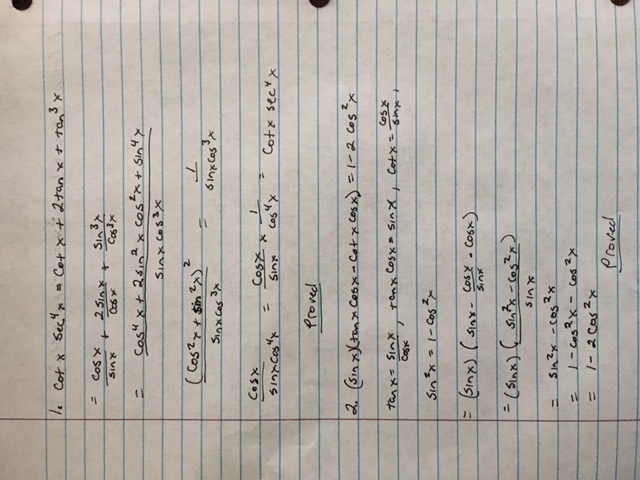 1. cot x sec⁴x = cot x + 2 tan x + tan³x
= cosx/sinx + 2sinx/cosx + sin³x/cos³x
= (cos⁴x + 2sin²x cos²x + sin⁴x)/(sinx cos³x)
(cos²x + sin²x)²/(sinx cos³x) = 1/(sinx cos³x)
cosx/(sinx cos⁴x) = cosx/sinx × 1/cos⁴x = cotx sec⁴x
Proved
2. (sinx)(tanx cosx - cotx cosx) = 1-2 cos²x
tanx = sinx/cosx, tanx cosx = sinx, cotx = cosx/sinx,
sin²x = 1-cos²x
= (sinx) (sinx - cosx/sinx · cosx)
= (sinx) ((sin²x - cos²x)/sinx)
= sin²x - cos²x
= 1 - cos²x - cos²x
= 1 - 2cos²x
Proved